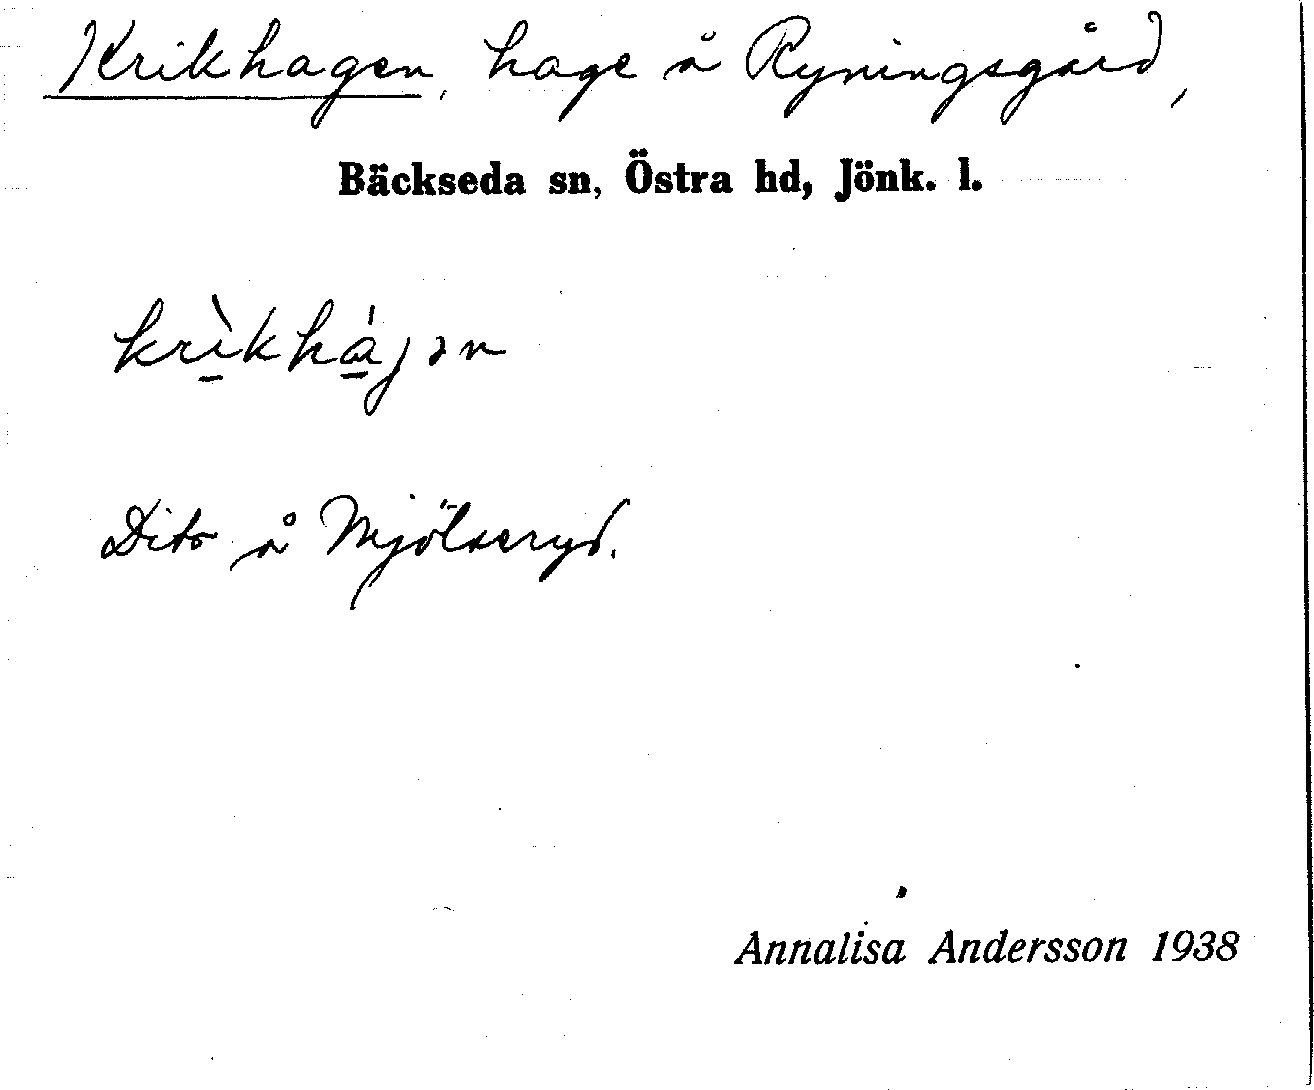 Krikhagen, hage å Ryningsgård,
Bäckseda sn, Östra hd, Jönk. l.
krı̲̀khɑ̲́ɡən
Dito å Mjölseryd.
Annalisa Andersson 1938